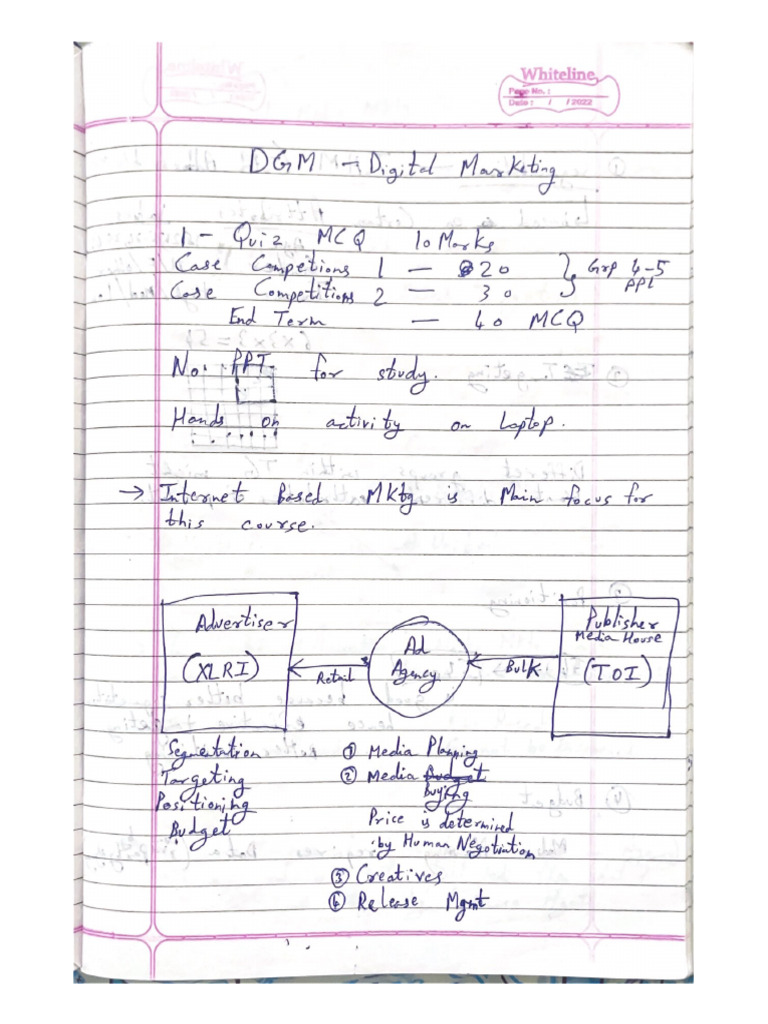 Whiteline
Page No. :
Date : / / 2022
DGM - Digital Marketing
1 - Quiz MCQ 10 Marks
Case Competions 1 — 20 } Grp 4-5
Case Competitions 2 — 30 PPt
End Term — 40 MCQ
No. PPT for study.
Hands on activity on Laptop.
→ Internet Based Mktg is Main focus for
this course.
Advertiser
(XLRI)
Retail
Ad
Agency
Bulk
Publisher
Media House
(TOI)
Segmentation
Targeting
Positioning
Budget
① Media Planning
② Media Budget
buying
Price is determined
by Human Negotiation
③ Creatives
④ Release Mgmt